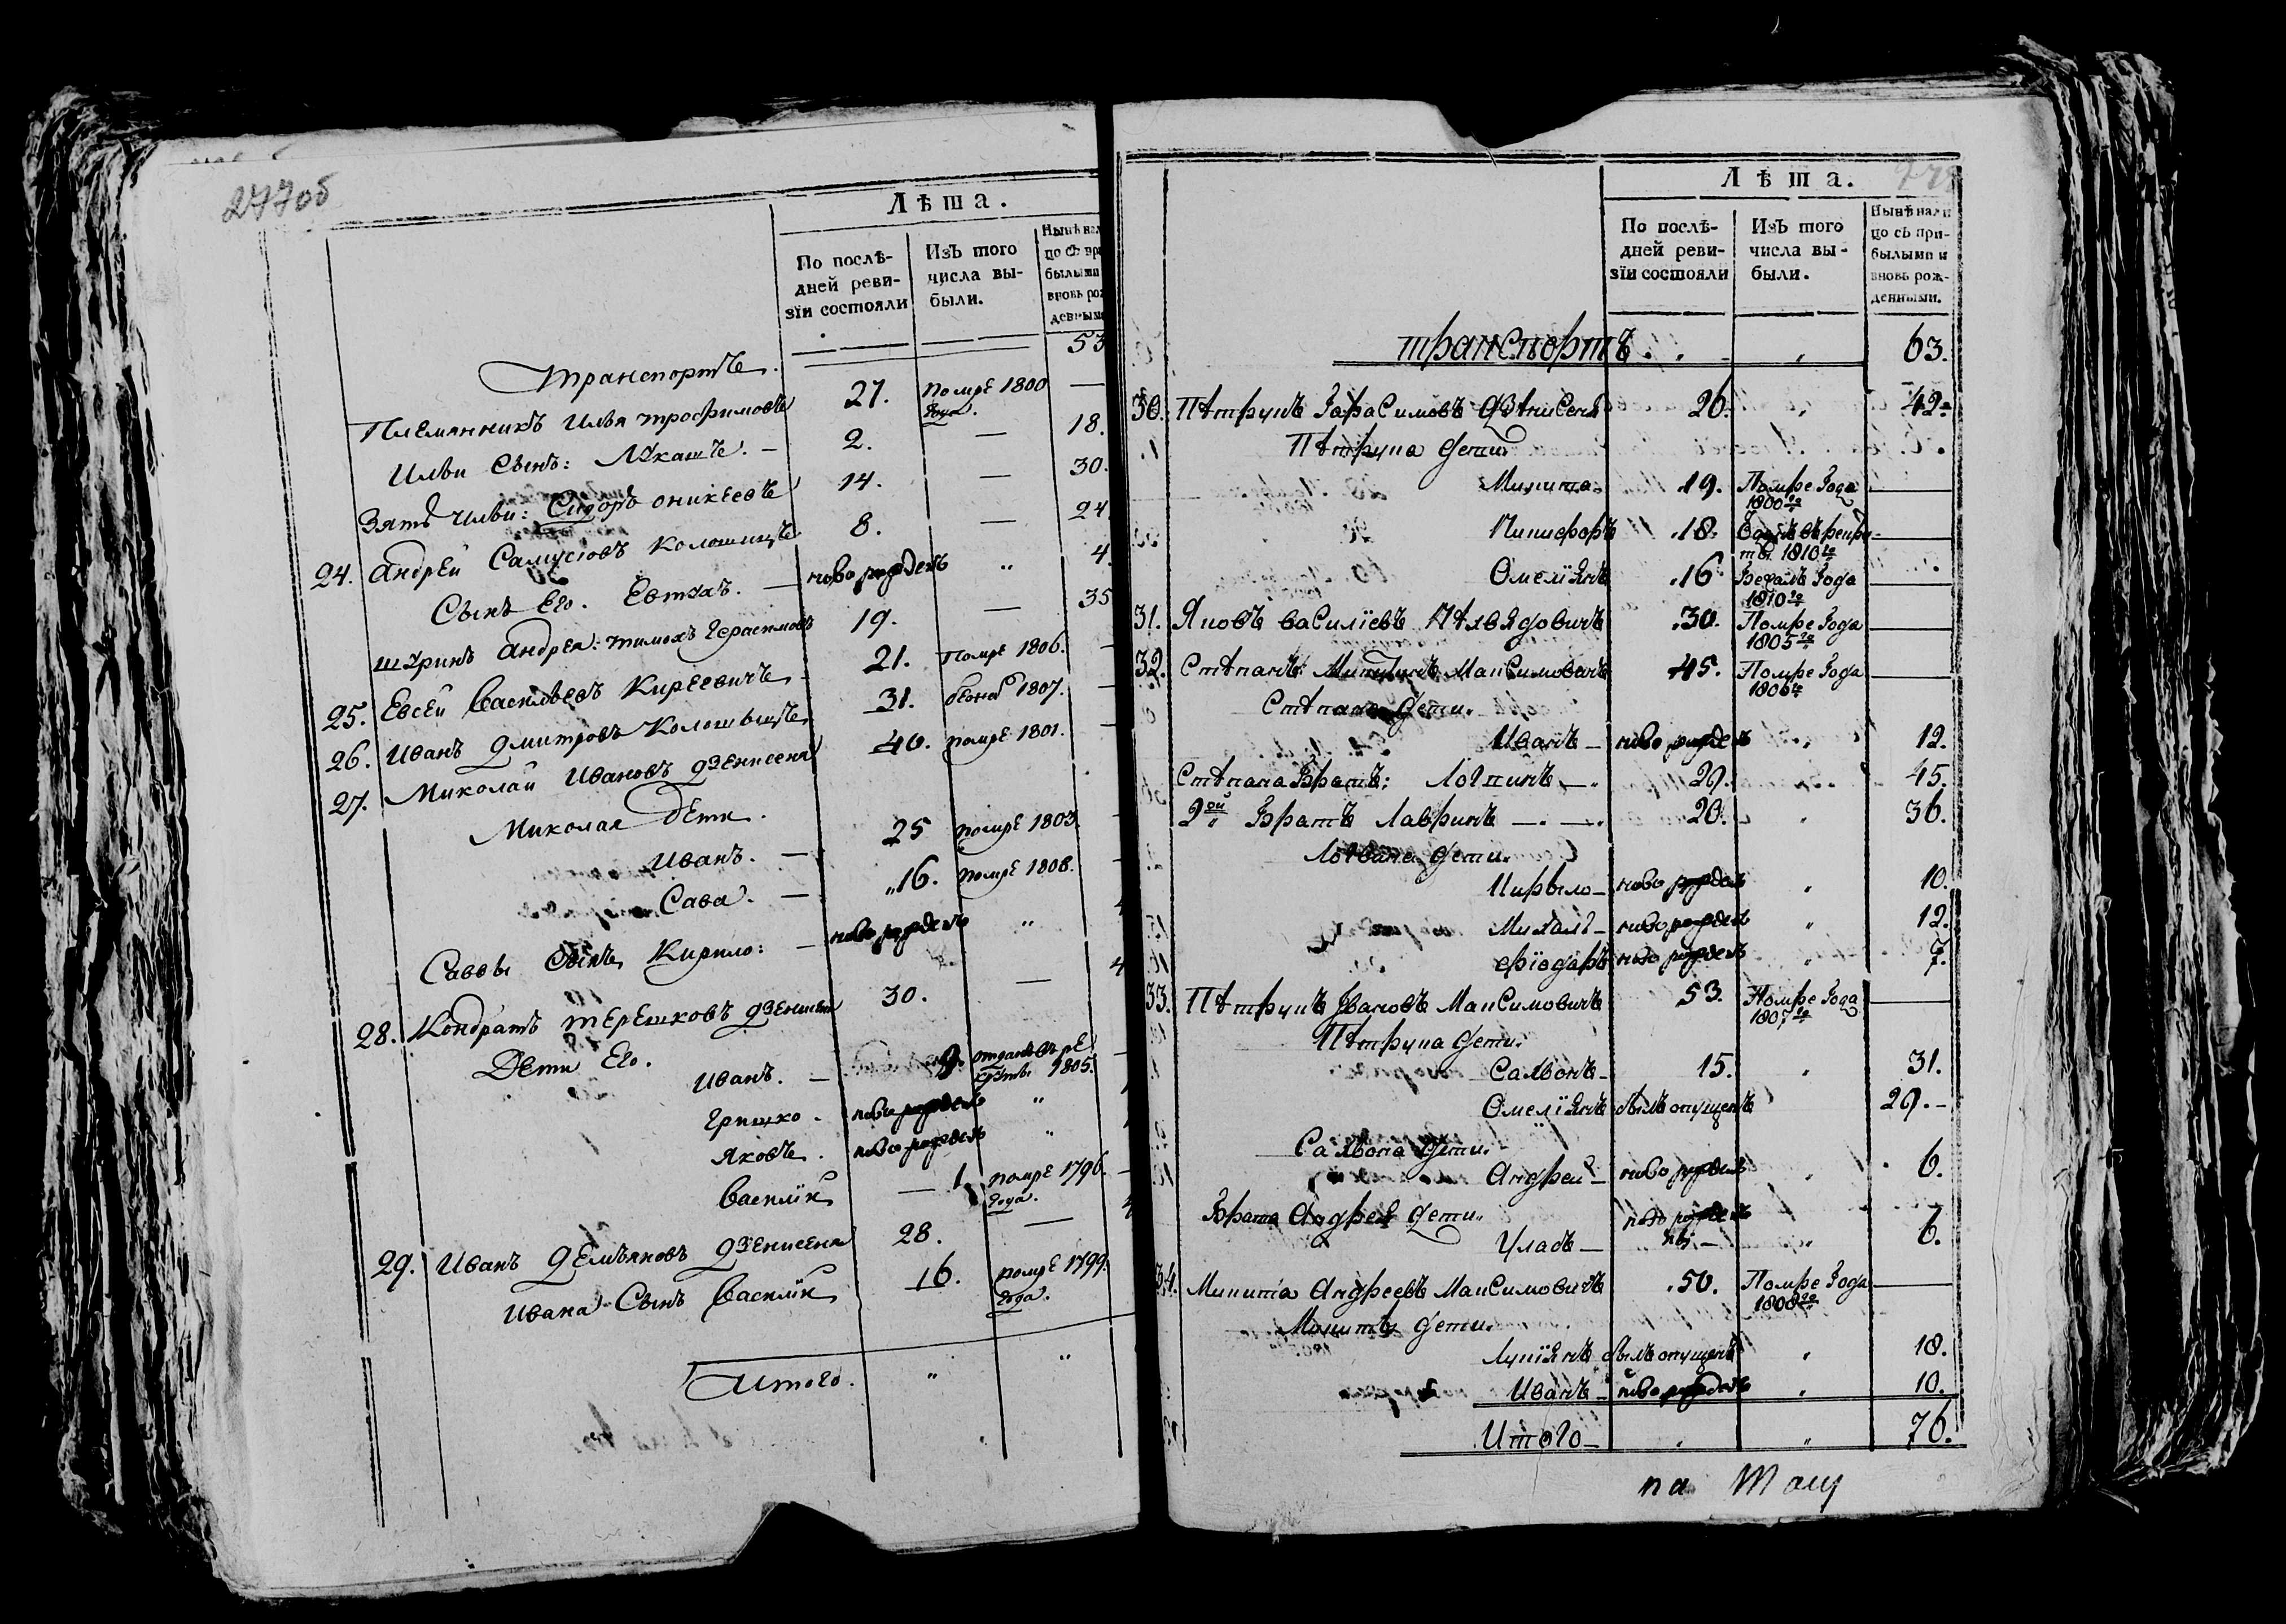 277об
Лѣта.
По послѣ-
дней реви-
зїи состояли
Изъ того
числа вы-
были.
Нынѣ на
цо съ при
былыми
вновь ро
денным
транспортъ. 53
Племянникъ Илья трофимовъ 27. помре 1800 года.
Ильи Сынъ: Лукашъ. — 2. — 18.
Зять Ильи: Сидоръ оникеевъ 14. — 30.
24. Андрей Самусіовъ Колошицъ 8. — 24.
Сынъ Его. Евтухъ. — ново рожденъ „ 4.
шуринъ Андрея: тимохъ Герасимовъ 19. — 35
25. Евсей Васильевъ Киреевичъ 21. помре 1806. —
26. Иванъ Дмитровъ Колошицъ 31. бежал 1807. —
27. Миколай Ивановъ дзенисеня 40. помре 1801. —
Миколая Дети.
Иванъ. — 25 помре 1803. —
Сава. — „16. помре 1808. —
Саввы Сынъ Кирило: — ново рожденъ „
28. Кондратъ терешковъ дзенисеня 30. —
Дети Его.
Иванъ. — 9. отданъ въ ре
круты 1805. —
Гришко. ново рожденъ „
Яковъ. ново рожденъ „
Василій — 1. помре 1796. года. —
29. Иванъ Демьяновъ дзенисеня 28. —
Ивана Сынъ Василій 16. помре 1799. года.
Итого. „ „
Лѣта.
По послѣ-
дней реви-
зїи состояли
Изъ того
числа вы-
были.
Нынѣ нали
цо съ при-
былыми и
вновь рож-
денными.
транспортъ. 63.
30. Петрукъ Гарасимовъ Дзенисеня 26. 42.
Петрука Дети.
Микита. 19. Помре Года 1800го —
Никифоръ 18. Отданъ въ рекру-
ты 1810го —
Омеліянъ 16. Бежалъ Года 1810го —
31. Яковъ василіевъ 30. Помре Года 1805го —
32. Степанъ Микитинъ Максимовичъ 45. Помре Года 1806го —
Степана Дети.
Иванъ — ново рожденъ „ 12.
Степана Братъ: — 29. 45.
2ой Братъ Лавринъ — 20. 36.
Дети.
Кирыло — ново рожденъ „ 10.
Михалъ — ново рожденъ „ 12.
фіодаръ ново рожденъ „ 7.
33. Петрукъ Ивановъ Максимовичъ 53. Помре Года 1807го —
Петрука Дети.
— 15. „ 31.
Омеліянъ былъ опущенъ 29. —
Дети.
Андрей — ново рожденъ „ 6.
Брата Андрея Дети. ново рожден
Уласъ — ны — „ 6.
34. Микита Андреевъ Максимовичъ 50. Помре Года 1808го —
Микиты Дети.
Лукіянъ былъ опущенъ „ 18.
Иванъ — ново рожденъ „ 10.
Итого — „ „ 76.
на